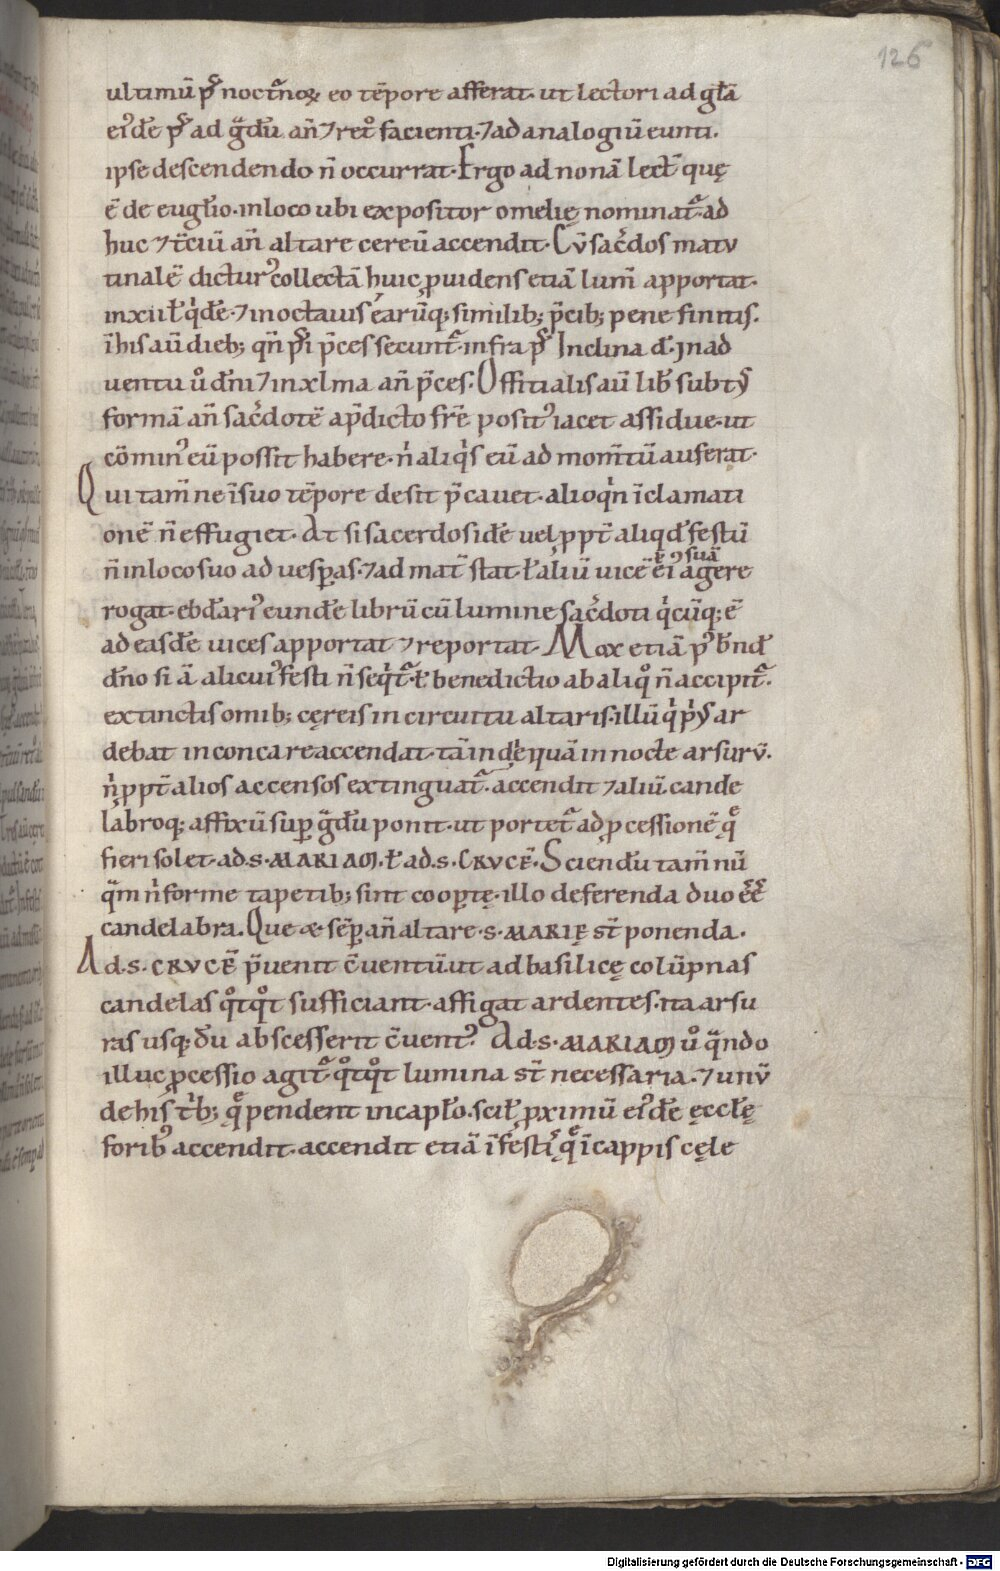 126
ultimū p̄s noct̄noꝝ eo tēpore afferat. ut lectori ad gl̄a
eið̄e p̄s ad g̃dū an̄ ⁊ ret̊ facienti. ⁊ ad analogiū eunti.
ipse descendendo n̄ occurrat. Ergo ad nonā lect̄ quę
ē de eugl̄io. in loco ubi expositor omelię nominat᷑ ad
huc ⁊ t̄ciū an̄ altare cereū accendit. Cū sac̓dos matu
tinalē dictur᾽ collectā huic ꝓuidens etiā lum̄ apportat.
in xii ł q̓de. ⁊ in octauis earūq; similib; p̄cib; pene finitis.
ī his aū dieb; qn̄ p̄si p̄ces secunt᷑ infra p̄s Inclina d̄. In ad
uentu ů dn̄i ⁊ in xlma an̄ p̄ces. Offitialis aū lib̄ sub t̄s
formā an̄ sac̓dotē a p̄dicto fr̄e posit᾽ iacet assidue. ut
cōmin᾽ eū possit habere. n̓ aliq̓s eū ad mom̄tū auferat.
Qui tam̄ ne ī suo tēpore desit p̄cauet. alioq̓n īclamati
onē n̄ effugiet. At si sacerdos idē uel ꝓpt̄ aliqd̄ festū
n̄ in loco suo ad uesp̱as. ⁊ ad mat̄ stat. ł aliū uicē ei᾽ suā agere
rogat. ebd̄ari᾽ eundē librū cū lumine sac̓doti q̓cūq; ē
ad easdē uices apportat ⁊ reportat. Mox etiā p᾽ bn̄d̄
dn̄o si ā alicui᾽ festi n̄ seq̓t᷑ ł benedictio ab aliq̊ n̄ accipit᷑.
extinctis om̄ib; cęreis in circuitu altaris. illū q̓ p̓s ar
debat in conca reaccendat. tā indē quā in nocte arsurū.
n̓ ꝓpt̄ alios accensos extinguat᷑. accendit ⁊ aliū cande
labroq; affixū suꝑ g̃dū ponit. ut portet᷑ ad ꝓcessionē q̄
fieri solet ad .s. MARIAM. ł ad .s. CRVCĒ. Sciendū tam̄ nū
q̃m n̓ forme tapetib; sint cooꝑtę. illo deferenda duo ēē
candelabra. Que & sēꝑ an̄ altare .s. MARIĘ st̄ ponenda.
Ad .s. CRVCĒ p̄uenit c̄uentū. ut ad basilicę colūpnas
candelas q̊tq̊t sufficiant. affigat ardentes. ita arsu
ras usq; dū abscesserit c̄uent᾽. Ad .s. MARIAM ů q̃ndo
illuc ꝓcessio agit᷑. q̊tq̊t lumina st̄ necessaria. ⁊ unū
de his t̓b; q̄ pendent in capl̄o. scił ꝓximū eið̄e ęccl̄ę
forib᾽ accendit. accendit etiā ī festis q̄ ī cappis cęle
Digitalisierung gefördert durch die Deutsche Forschungsgemeinschaft - DFG